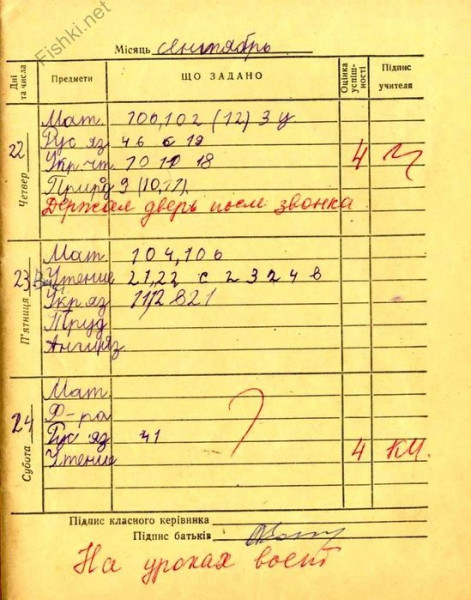 Fishki.net
Місяць сентябрь
Дні та числа
Предмети
ЩО ЗАДАНО
Оцінка успіш-
ності
Підпис
учителя
22 Четвер
Мат. 100,102 (12) 3 у
Рус яз 46 с 19
Укр чт. 10 18
4
Природ 9 (10,11)
Держал дверь после звонка
23 П'ятниця
Мат. 104,106
Чтение 21,22 с 23 24 в
Укр яз 112 в 21
Труд
Англ яз
24 Субота
Мат.
Ф-ра
Рус яз 41
Чтение
4 КМ.
Підпис класного керівника
Підпис батьків
На уроках воет